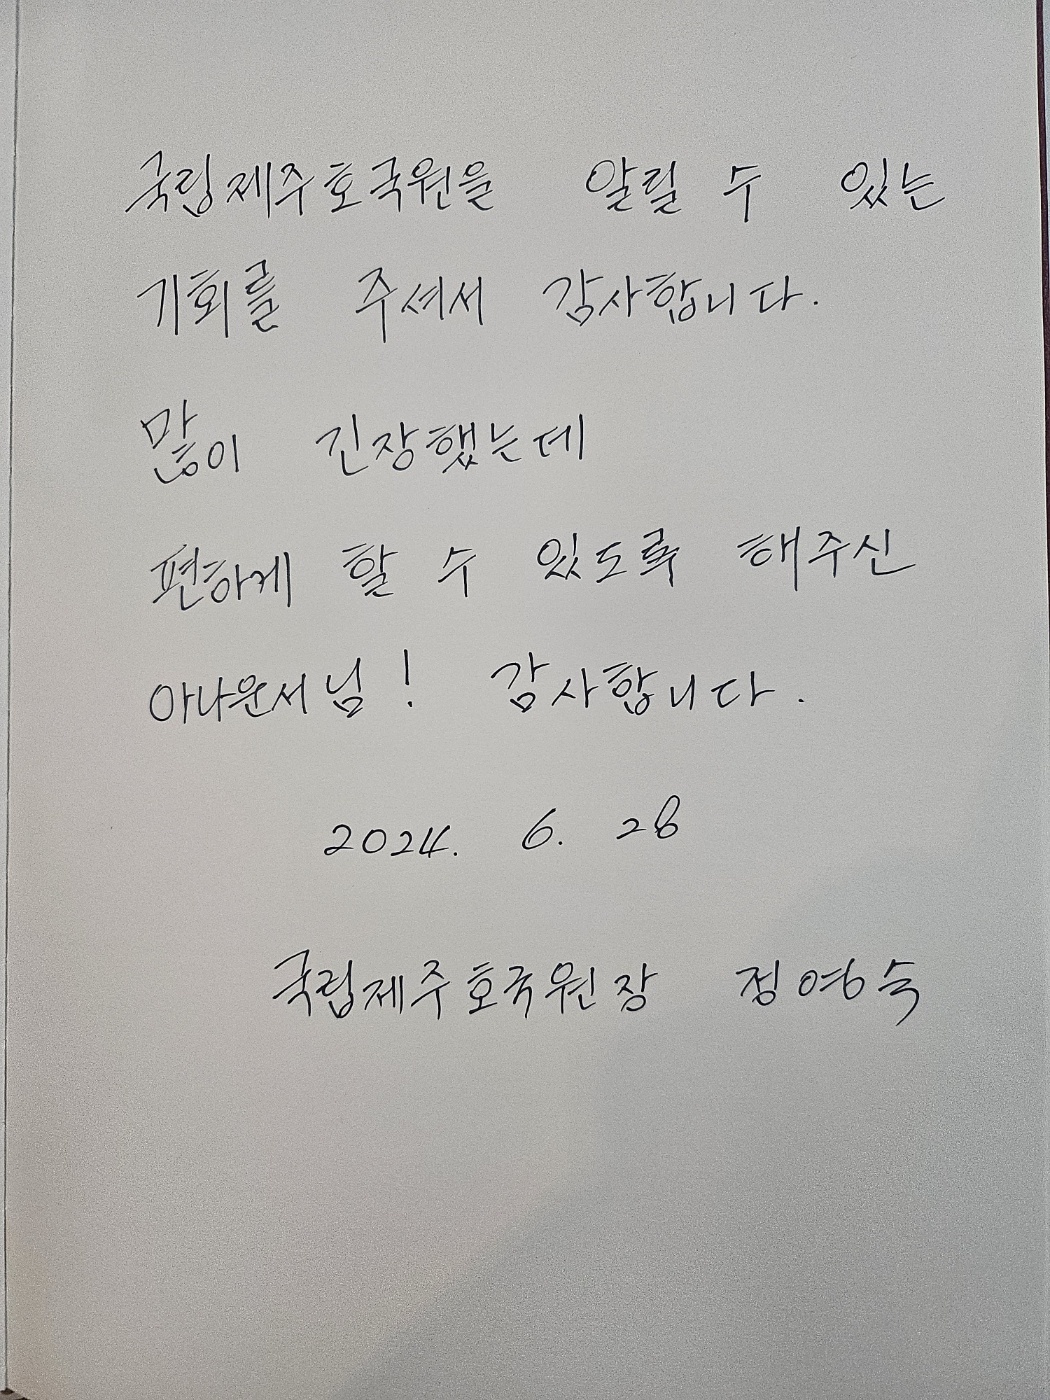 국립제주호국원을 알릴 수 있는
기회를 주셔서 감사합니다.
많이 긴장했는데
편하게 할 수 있도록 해주신
아나운서님! 감사합니다.
2024. 6. 28
국립제주호국원장 정영숙